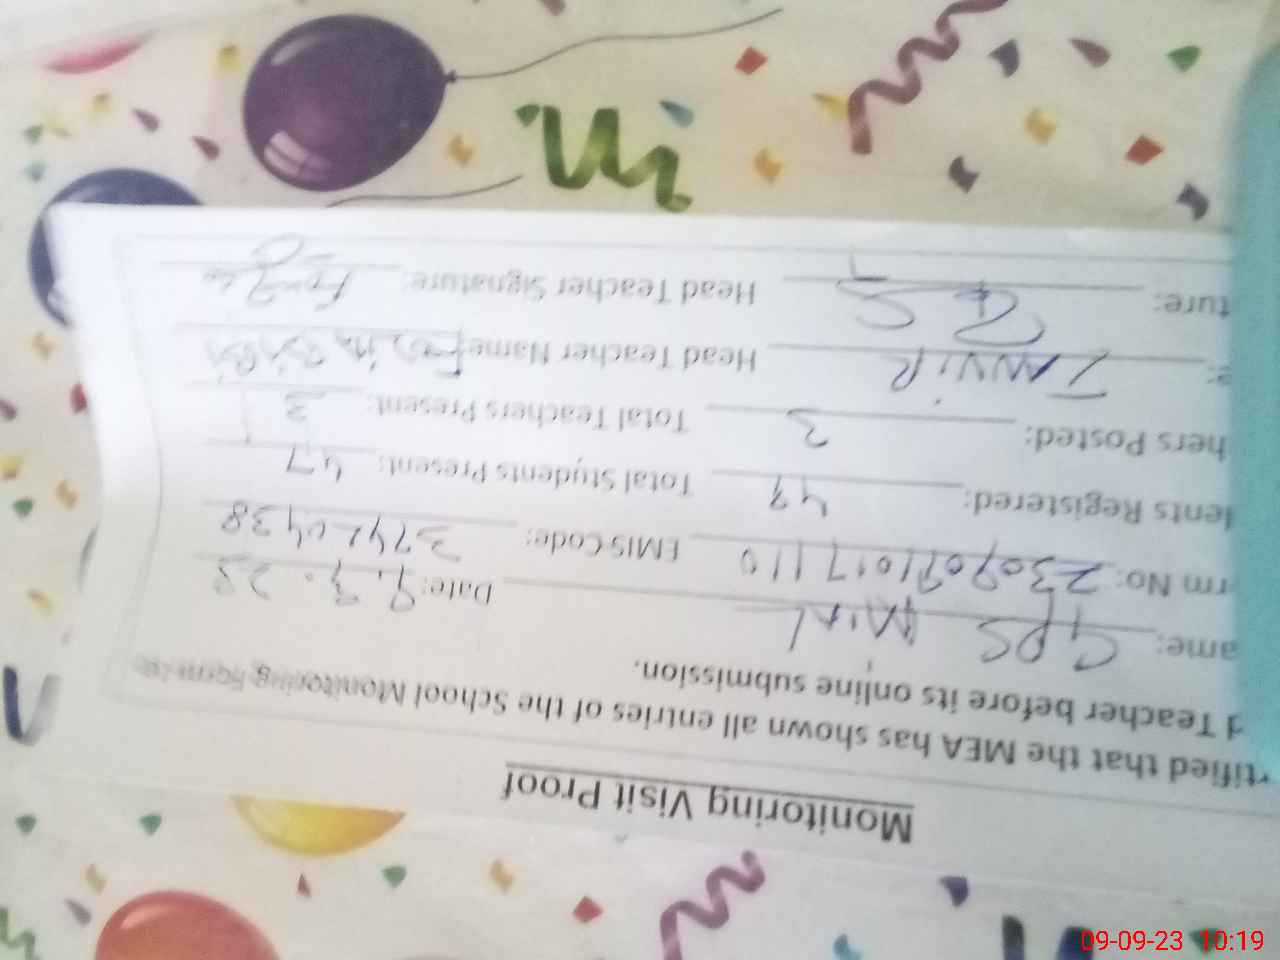 Monitoring Visit Proof
rtified that the MEA has shown all entries of the School Monitoring Form
d Teacher before its online submission.
ame: GPS Date: 9. 9. 23
rm No: EMIS Code: 37420438
lents Registered: Total Students Present: 47
hers Posted: 3 Total Teachers Present: 3
e: TANVIR Head Teacher Name
ture: Head Teacher Signature:
09-09-23 10:19